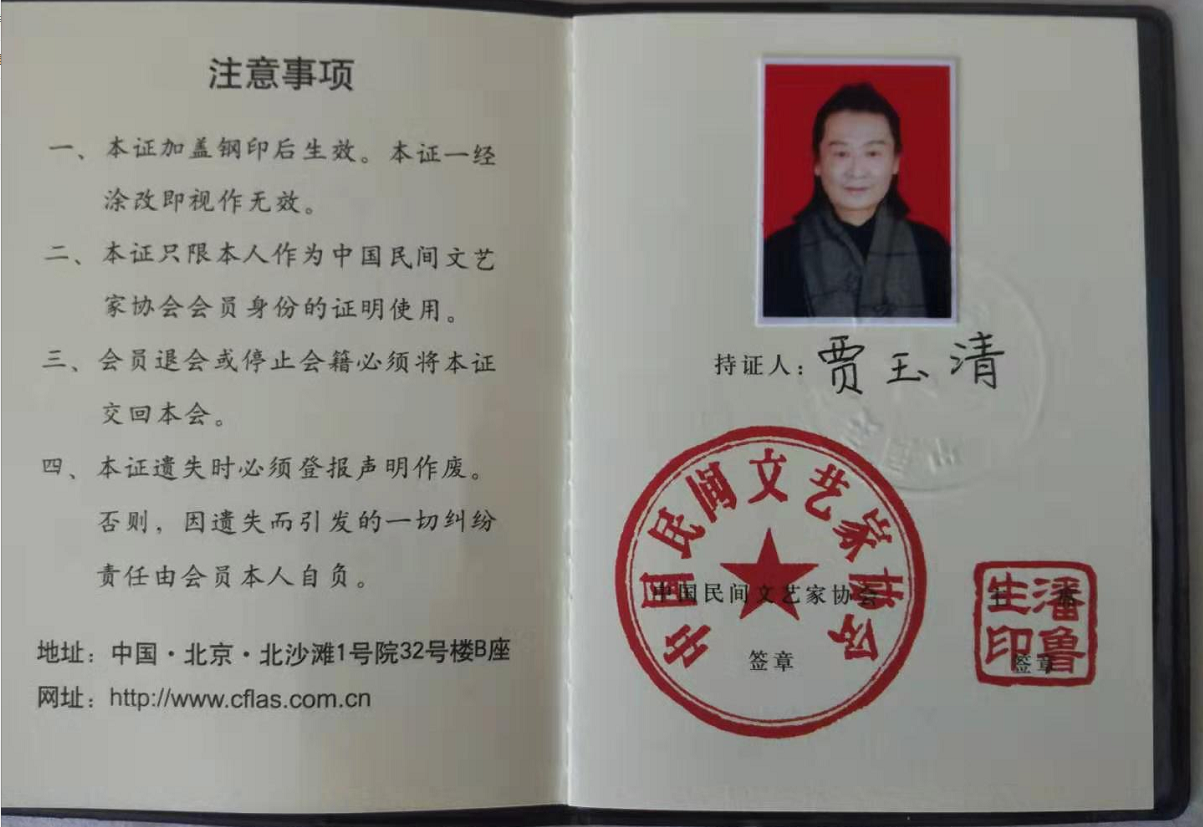 注意事项
一、本证加盖钢印后生效。本证一经
涂改即视作无效。
二、本证只限本人作为中国民间文艺
家协会会员身份的证明使用。
三、会员退会或停止会籍必须将本证
交回本会。
四、本证遗失时必须登报声明作废。
否则，因遗失而引发的一切纠纷
责任由会员本人自负。
地址：中国·北京·北沙滩1号院32号楼B座
网址：http://www.cflas.com.cn
持证人：贾玉清
中国民间文艺家协会
中国民间文艺家协会
签章
潘鲁
生印
签章